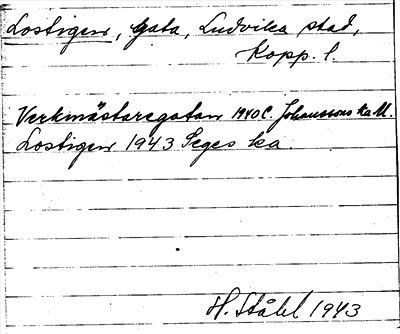 Lostigen, gata, Ludvika stad,
Kopp. l.
Verkmästaregatan 1940 C. Johanssons ka M.
Lostigen 1943 Seges ka.
H. Ståhl 1943